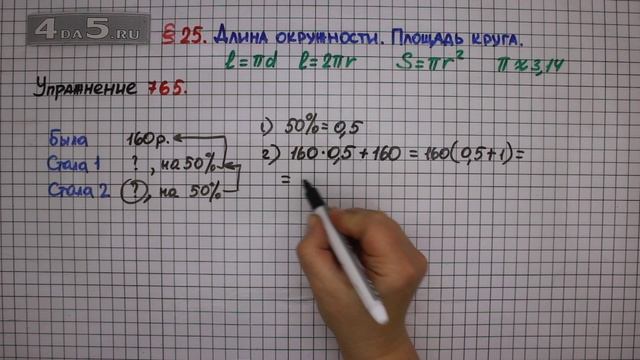 4DA5.RU
§ 25. Длина окружности. Площадь круга.
ℓ = πd ℓ = 2πr S = πr² π ≈ 3,14
Упражнение 765.
Была 160 р.
Стала 1 ?, на 50%
Стала 2 ?, на 50%
1) 50% = 0,5
2) 160·0,5 + 160 = 160(0,5+1) =
=